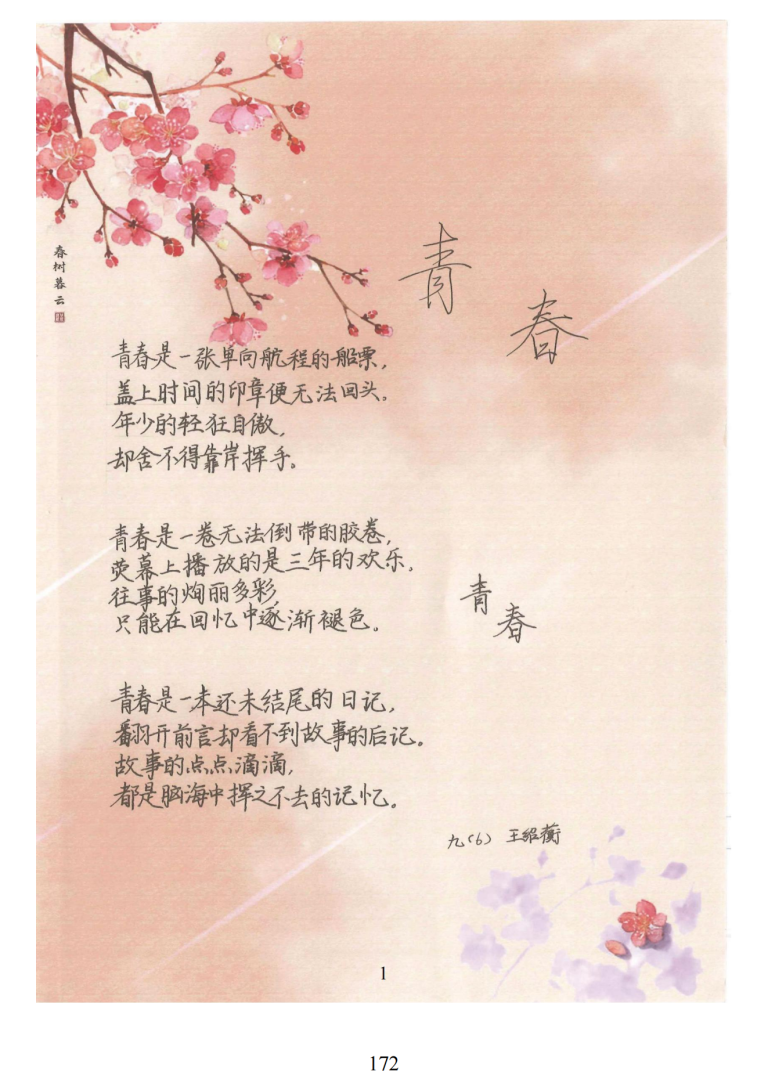 青春
春树暮云
青春是一张单向航程的船票,
盖上时间的印章便无法回头。
年少的轻狂自傲,
却舍不得靠岸挥手。
青春是一卷无法倒带的胶卷,
荧幕上播放的是三年的欢乐,
往事的绚丽多彩,
只能在回忆中逐渐褪色。
青春
青春是一本还未结尾的日记,
翻开前言却看不到故事的后记。
故事的点点滴滴,
都是脑海中挥之不去的记忆。
九(6) 王绍蘅
1
172